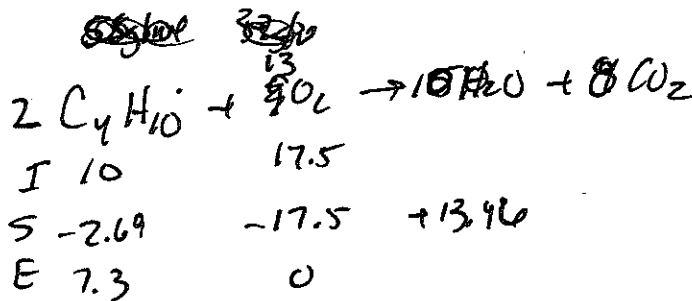 13
2 C4H10 + O2 → 10 H2O + 8 CO2
I 10 17.5
S -2.69 -17.5 +13.46
E 7.3 0